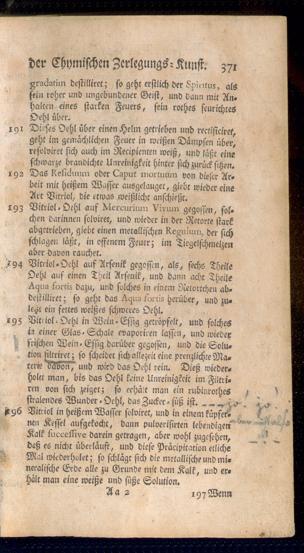 der Chymischen Zerlegungs-Kunst. 371
gradatim destilliret; so geht erstlich der Spiritus, als
ein roher und ungebundener Geist, und dann mit An-
halten eines starken Feuers, sein rothes feurichtes
Oehl über.
191 Dieses Oehl über einen Helm getrieben und rectificiret,
geht im gemächlichen Feuer in weissen Dämpfen über,
resolviret sich auch im Recipienten weiß, und läßt eine
schwarze brandichte Unreinigkeit hinter sich zurück sitzen.
192 Das Residuum oder Caput mortuum von dieser Ar-
beit mit heißem Wasser ausgelauget, giebt wieder eine
Art Vitriol, die etwas weißlicht anschießt.
193 Vitriol-Oehl auf Mercurium Vivum gegossen, sol-
chen darinnen solviret, und wieder in der Retorte stark
abgetrieben, giebt einen metallischen Regulum, der sich
schlagen läßt, in offenem Feuer; im Tiegelschmelzen
aber davon rauchet.
194 Vitriol-Oehl auf Arsenik gegossen, als, sechs Theile
Oehl auf einen Theil Arsenik, und dann acht Theile
Aqua fortis dazu, und solches in einem Retortchen ab-
destilliret; so geht das Aqua fortis herüber, und zu-
letzt ein fettes weißes schweres Oehl.
195 Vitriol-Oehl in Wein-Eßig getröpfelt, und solches
in einer Glas-Schale evaporiren lassen, und wieder
frischen Wein-Eßig darüber gegossen, und die Solu-
tion filtriret; so scheidet sich allezeit eine prenzlichte Ma-
terie davon, und wird das Oehl rein. Dieß wieder-
holet man, bis das Oehl keine Unreinigkeit im Filtri-
ren von sich zeiget; so erhält man ein rubinrothes
stralendes Wunder-Oehl, das Zucker-süß ist.
196 Vitriol in heißem Wasser solviret, und in einem kupfer-
nen Kessel aufgekocht, dann pulverisirten lebendigen
Kalk successive darein getragen, aber wohl zugesehen,
daß es nicht überläuft, und diese Präcipitation etliche
Mal wiederholet; so schlägt sich die metallische und mi-
neralische Erde alle zu Grunde mit dem Kalk, und er-
hält man eine weiße und süße Solution.
Aa 2 197 Wenn